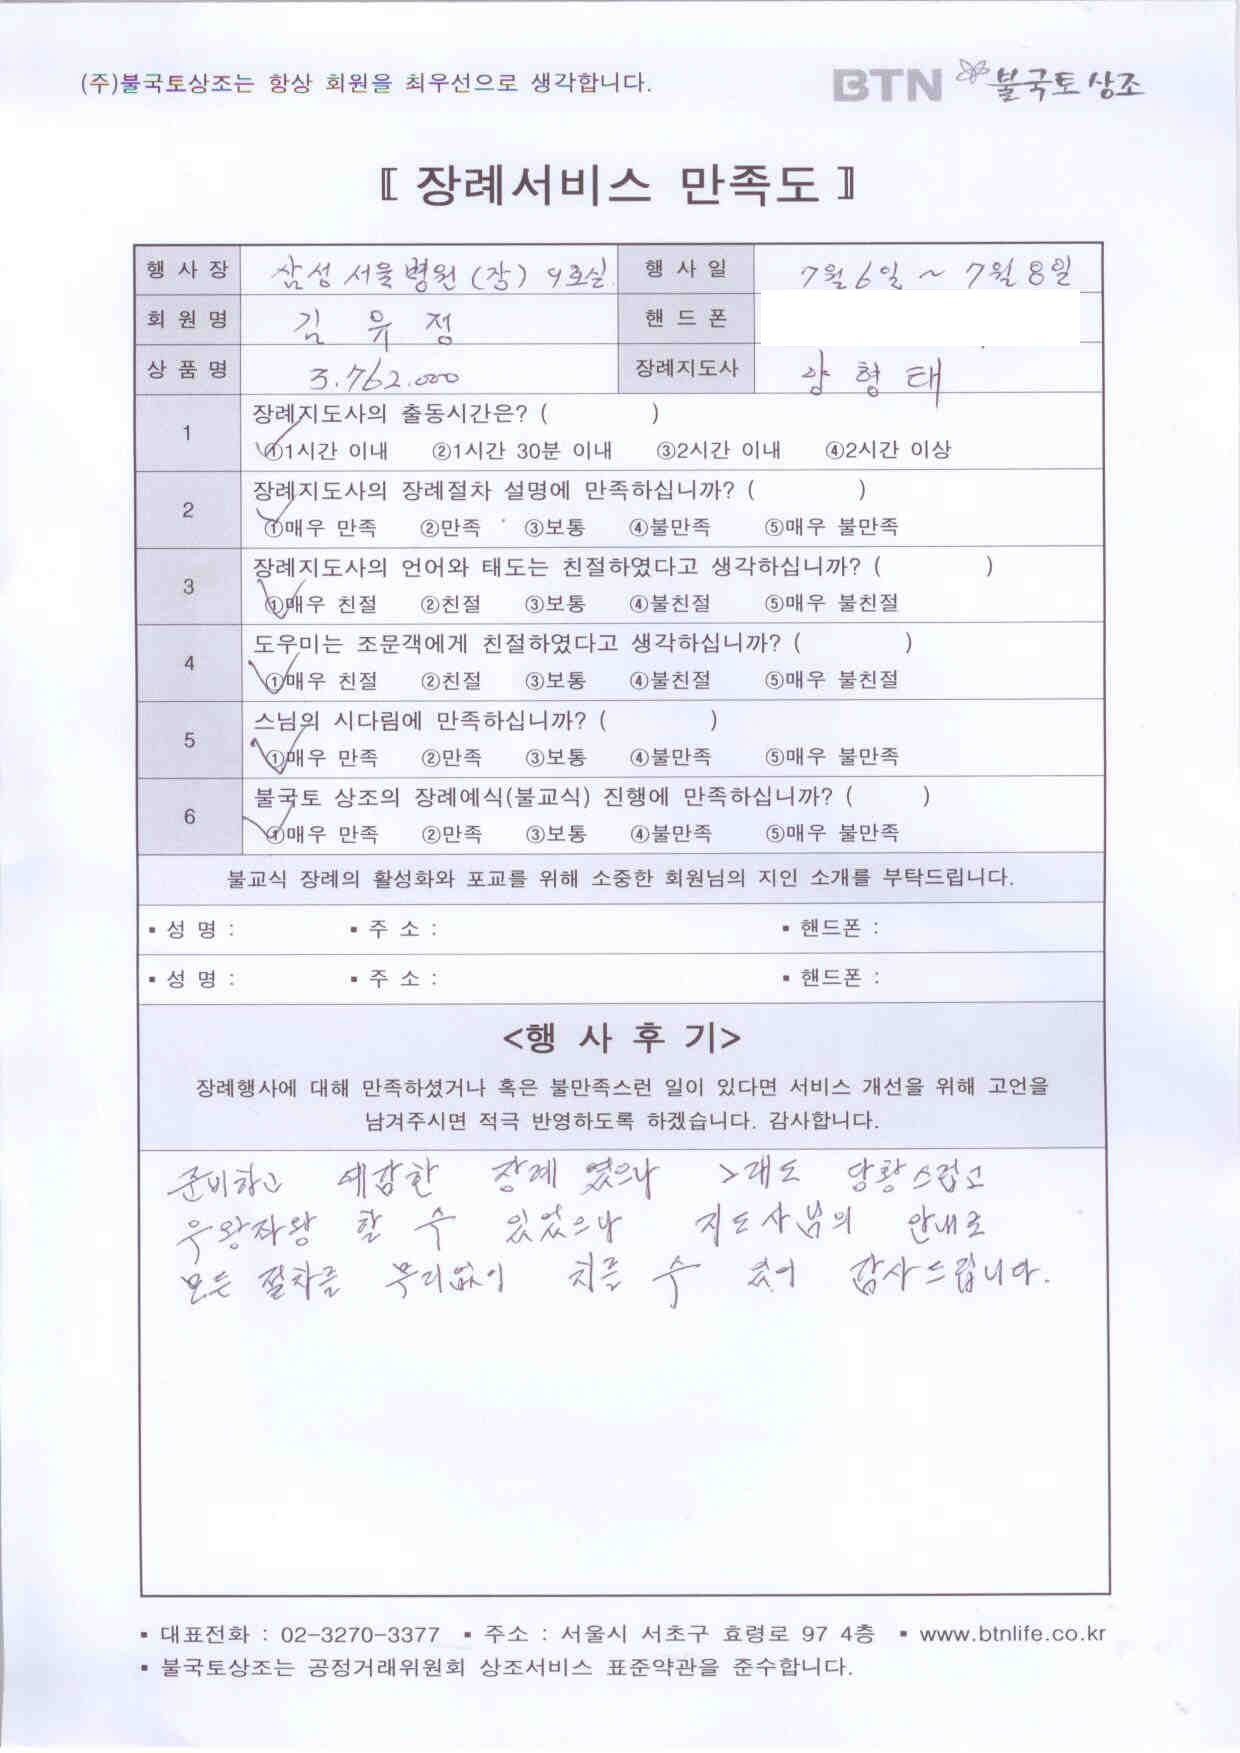 (주)불국토상조는 항상 회원을 최우선으로 생각합니다.
BTN 불국토 상조
〖 장례서비스 만족도 〗
행 사 장 삼성 서울 병원 (장) 9호실 행 사 일 7월 6일 ~ 7월 8일
회 원 명 김 유 정 핸 드 폰
상 품 명 3.762.000 장례지도사 양 형 태
1 장례지도사의 출동시간은? ( )
①1시간 이내 ②1시간 30분 이내 ③2시간 이내 ④2시간 이상
2 장례지도사의 장례절차 설명에 만족하십니까? ( )
①매우 만족 ②만족 ③보통 ④불만족 ⑤매우 불만족
3 장례지도사의 언어와 태도는 친절하였다고 생각하십니까? ( )
①매우 친절 ②친절 ③보통 ④불친절 ⑤매우 불친절
4 도우미는 조문객에게 친절하였다고 생각하십니까? ( )
①매우 친절 ②친절 ③보통 ④불친절 ⑤매우 불친절
5 스님의 시다림에 만족하십니까? ( )
①매우 만족 ②만족 ③보통 ④불만족 ⑤매우 불만족
6 불국토 상조의 장례예식(불교식) 진행에 만족하십니까? ( )
①매우 만족 ②만족 ③보통 ④불만족 ⑤매우 불만족
불교식 장례의 활성화와 포교를 위해 소중한 회원님의 지인 소개를 부탁드립니다.
▪ 성 명 : ▪ 주 소 : ▪ 핸드폰 :
▪ 성 명 : ▪ 주 소 : ▪ 핸드폰 :
<행 사 후 기>
장례행사에 대해 만족하셨거나 혹은 불만족스런 일이 있다면 서비스 개선을 위해 고언을
남겨주시면 적극 반영하도록 하겠습니다. 감사합니다.
준비하고 예감한 장례 였으나 그래도 당황스럽고
우왕좌왕 할 수 있었으나 지도사님의 안내로
모든 절차를 무리없이 치를 수 있어 감사드립니다.
▪ 대표전화 : 02-3270-3377 ▪ 주소 : 서울시 서초구 효령로 97 4층 ▪ www.btnlife.co.kr
▪ 불국토상조는 공정거래위원회 상조서비스 표준약관을 준수합니다.